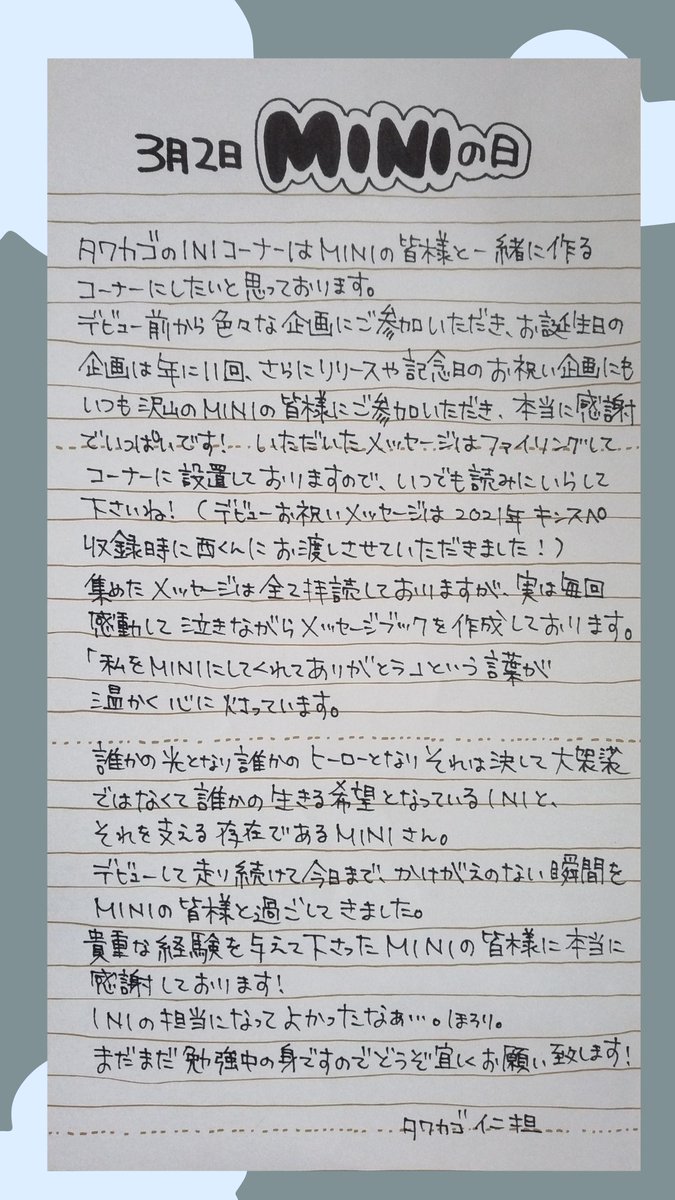 3月2日 MINIの日
タワカゴのINIコーナーはMINIの皆様と一緒に作る
コーナーにしたいと思っております。
デビュー前から色々な企画にご参加いただき、お誕生日の
企画は年に11回、さらにリリースや記念日のお祝い企画にも
いつも沢山のMINIの皆様にご参加いただき、本当に感謝
でいっぱいです! いただいたメッセージはファイリングして
コーナーに設置しておりますので、いつでも読みにいらして
下さいね!(デビューお祝いメッセージは2021年キンスペ
収録時に西くんにお渡しさせていただきました!)
集めたメッセージは全て拝読しておりますが、実は毎回
感動して泣きながらメッセージブックを作成しております。
「私をMINIにしてくれてありがとう」という言葉が
温かく心に灯っています。
誰かの光となり誰かのヒーローとなりそれは決して大袈裟
ではなくて誰かの生きる希望となっているINIと、
それを支える存在であるMINIさん。
デビューして走り続けて今日まで、かけがえのない瞬間を
MINIの皆様と過ごしてきました。
貴重な経験を与えて下さったMINIの皆様に本当に
感謝しております!
INIの担当になってよかったなぁ…。ほろり。
まだまだ勉強中の身ですのでどうぞ宜しくお願い致します!
タワカゴ 仁担